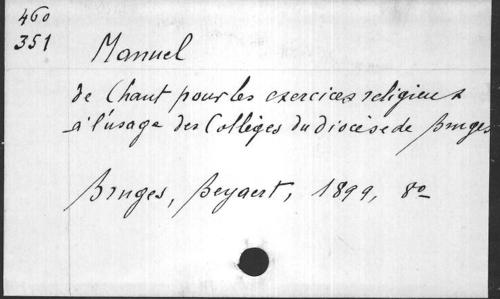 460
351
Manuel
de Chant pour les exercices religieux
à l'usage des Collèges du diocèse de Bruges
Bruges, Beyaert, 1899, 8o